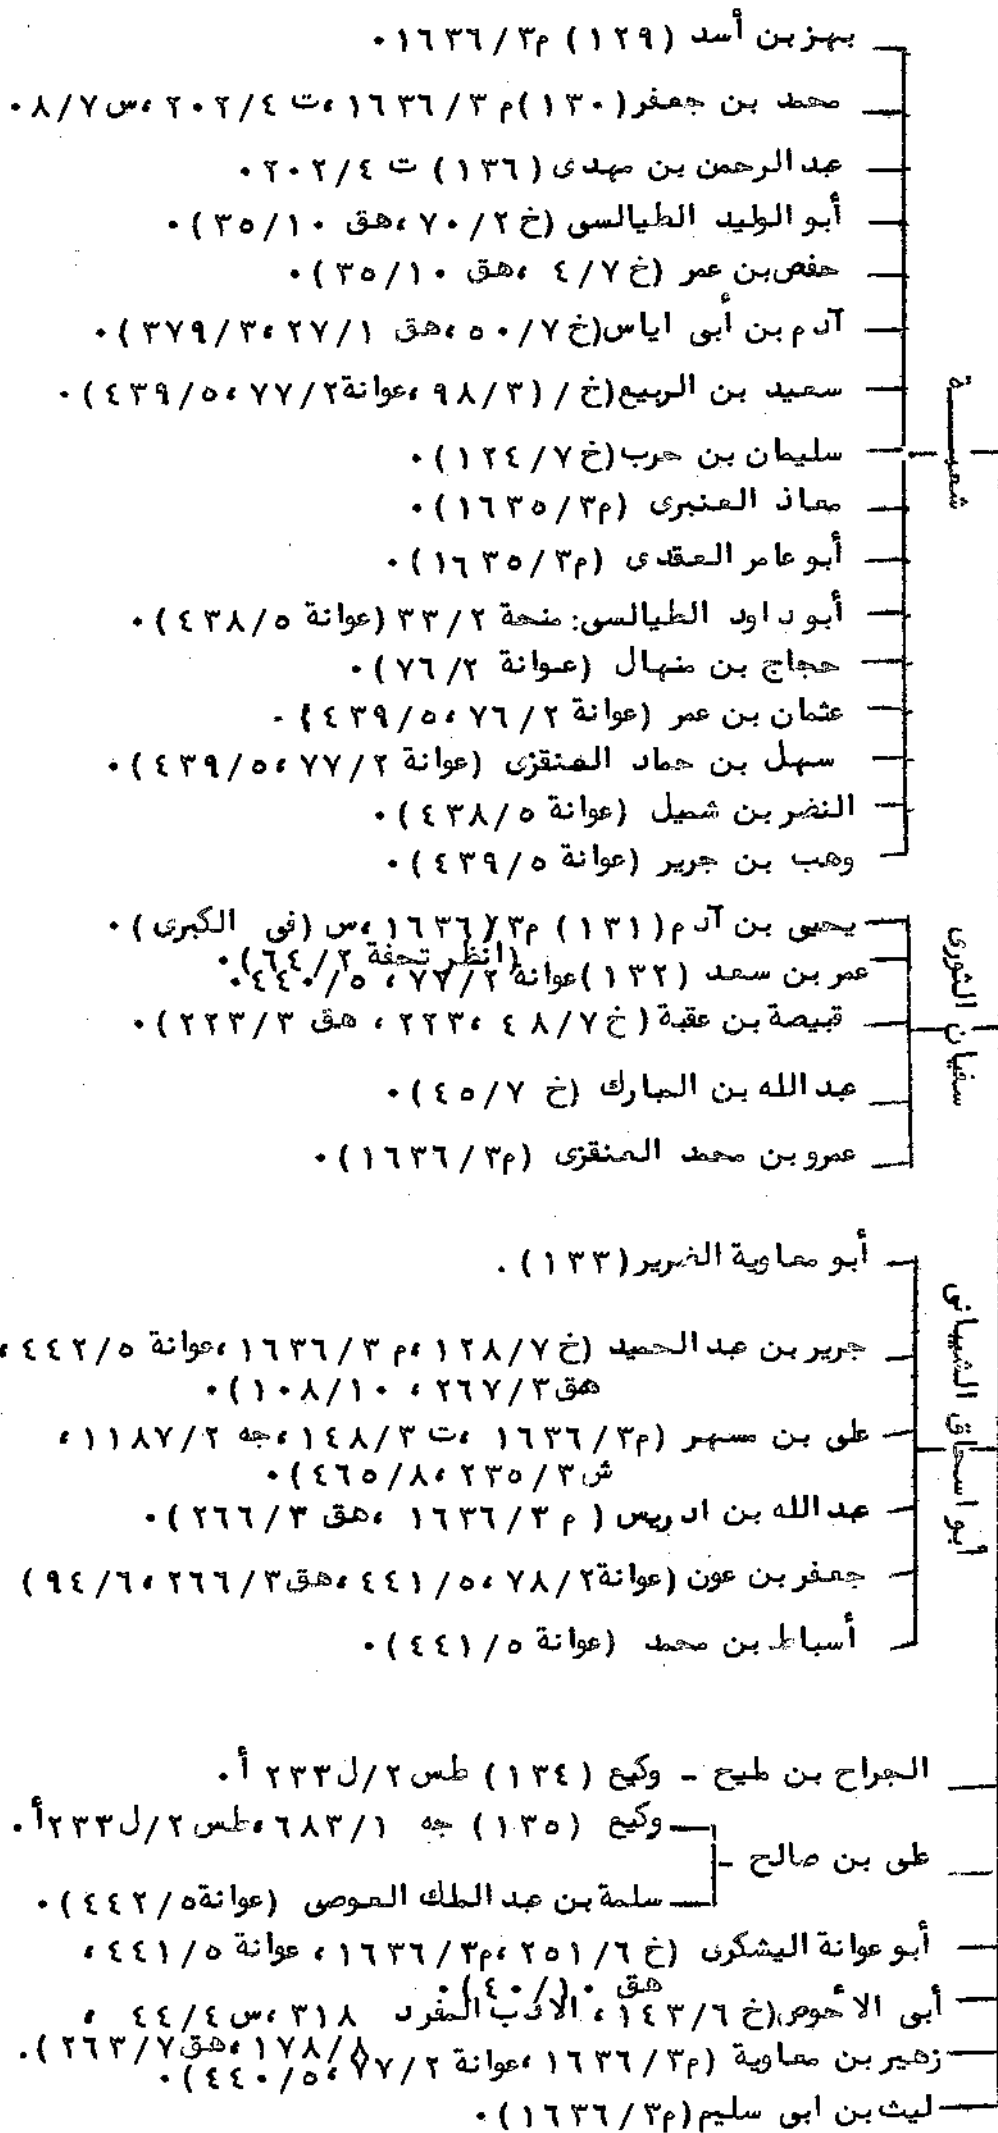 بهز بن أسد (١٢٩) م٣/١٦٣٦٠
محمد بن جعفر (١٣٠) م ٣/١٦٣٦، ت ٤/٢٠٢، س ٧/٨٠
عبد الرحمن بن مهدى (١٣٦) ت ٤/٢٠٢٠
أبو الوليد الطيالسى (خ ٢/٧٠، هق ١٠/٣٥)٠
حفص بن عمر (خ ٧/٤، هق ١٠/٣٥)٠
آدم بن أبى اياس (خ ٧/٥٠، هق ١/٢٧، ٣/٣٧٩)٠
سعيد بن الربيع (خ / (٣/٩٨، عوانة ٢/٧٧، ٥/٤٣٩)٠
سليمان بن حرب (خ ٧/١٢٤)٠
معاذ العنبرى (م٣/١٦٣٥)٠
أبو عامر العقدى (م٣/١٦٣٥)٠
أبو داود الطيالسى: منحة ٢/٣٣ (عوانة ٥/٤٣٨)٠
حجاج بن منهال (عوانة ٢/٧٦)٠
عثمان بن عمر (عوانة ٢/٧٦، ٥/٤٣٩)٠
سهل بن حماد المنقزى (عوانة ٢/٧٧، ٥/٤٣٩)٠
النضر بن شميل (عوانة ٥/٤٣٨)٠
وهب بن جرير (عوانة ٥/٤٣٩)٠
شعبة
يحيى بن آدم (١٣١) م٣/١٦٣٦، س (فى الكبرى)٠
(انظر تحفة ٢/٦٤)٠
عمر بن سعد (١٣٢) عوانة ٢/٧٧، ٥/٤٤٠٠
قبيصة بن عقبة (خ ٧/٤٨، ٢٢٣، هق ٣/٢٢٣)٠
عبد الله بن المبارك (خ ٧/٤٥)٠
عمرو بن محمد المنقزى (م٣/١٦٣٦)٠
سفيان الثورى
أبو معاوية الضرير (١٣٣)٠
جرير بن عبد الحميد (خ ٧/١٢٨، م ٣/١٦٣٦، عوانة ٥/٤٤٢،
هق ٣/٢٦٧، ١٠/١٠٨)٠
على بن مسهر (م٣/١٦٣٦، ت ٣/١٤٨، جه ٢/١١٨٧،
ش ٣/٢٣٥، ٨/٤٦٥)٠
عبد الله بن ادريس (م ٣/١٦٣٦، هق ٣/٢٦٦)٠
جعفر بن عون (عوانة ٢/٧٨، ٥/٤٤١، هق ٣/٢٦٦، ٦/٩٤)
أسباط بن محمد (عوانة ٥/٤٤١)٠
أبو اسحاق الشيبانى
الجراح بن مليح - وكيع (١٣٤) طس ٢/ل ٢٣٣ أ٠
وكيع (١٣٥) جه ١/٦٨٣، طس ٢/ل ٢٣٣أ٠
على بن صالح -
سلمة بن عبد الملك العوصى (عوانة ٥/٤٤٢)٠
أبو عوانة اليشكرى (خ ٦/٢٥١، م٣/١٦٣٦، عوانة ٥/٤٤١،
هق ١٠/٤٠)٠
أبى الاحوص (خ ٦/١٤٣، الادب المفرد ٣١٨، س ٤/٤٤،
٨/١٧٨، هق ٧/٢٦٣)٠
زهير بن معاوية (م٣/١٦٣٦، عوانة ٢/٧٧، ٥/٤٤٠)٠
ليث بن ابى سليم (م٣/١٦٣٦)٠